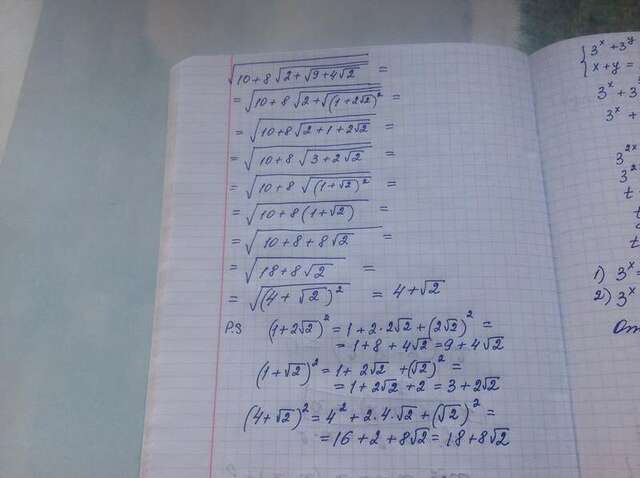 √(10+8√(2+√(9+4√2))) =
= √(10+8√(2+√((1+2√2)²))) =
= √(10+8√(2+1+2√2)) =
= √(10+8√(3+2√2)) =
= √(10+8√((1+√2)²)) =
= √(10+8(1+√2)) =
= √(10+8+8√2) =
= √(18+8√2) =
= √((4+√2)²) = 4+√2
P.S (1+2√2)² = 1+2·2√2+(2√2)² =
= 1+8+4√2 = 9+4√2
(1+√2)² = 1+2√2+(√2)² =
= 1+2√2+2 = 3+2√2
(4+√2)² = 4²+2·4·√2+(√2)² =
= 16+2+8√2 = 18+8√2
3ˣ+3ʸ
x+y=
3ˣ+3
3ˣ+
3²ˣ
3²
t
t
t
1) 3ˣ=
2) 3ˣ
От